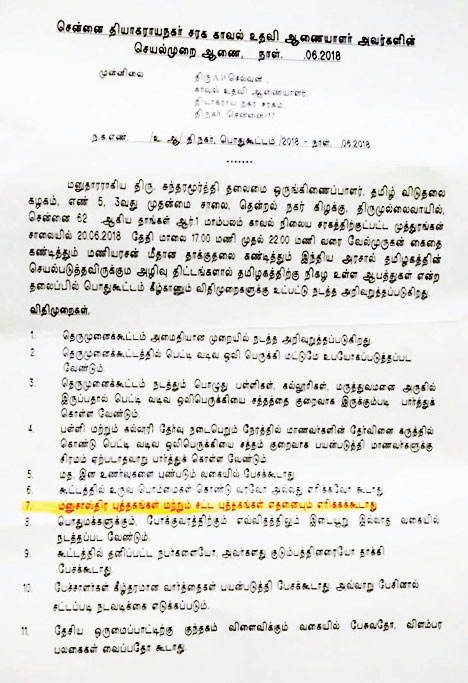 சென்னை தியாகராயநகர் சரக காவல் உதவி ஆணையாளர் அவர்களின்
செயல்முறை ஆணை, நாள். .06.2018
முன்னிலை திரு.A.P.செல்வன்,
காவல் உதவி ஆணையாளர்,
தியாகராய நகர் சரகம்,
தி.நகர், சென்னை-17.
ந.க.எண். /உ.ஆ/தி.நகர், பொதுகூட்டம்/2018 - நாள். .06.2018
*******
மனுதாரராகிய திரு. சுந்தரமூர்த்தி தலைமை ஒருங்கிணைப்பாளர், தமிழ் விடுதலை
கழகம், எண் 5, 3வது முதன்மை சாலை, தென்றல் நகர் கிழக்கு, திருமுல்லைவாயில்,
சென்னை 62 ஆகிய தாங்கள் ஆர்.1 மாம்பலம் காவல் நிலைய சரகத்திற்குட்பட்ட முத்துரங்கன்
சாலையில் 20.06.2018 தேதி மாலை 17.00 மணி முதல் 22.00 மணி வரை வேல்முருகன் கைதை
கண்டித்தும் மணியரசன் மீதான தாக்குதலை கண்டித்தும் இந்திய அரசால் தமிழகத்தின்
செயல்படுத்தவிருக்கும் அழிவு திட்டங்களால் தமிழகத்திற்கு நிகழ உள்ள ஆபத்துகள் என்ற
தலைப்பில் பொதுகூட்டம் கீழ்காணும் விதிமுறைகளுக்கு உட்பட்டு நடத்த அறிவுறுத்தப்படுகிறது.
விதிமுறைகள்.
1. தெருமுனைக்கூட்டம் அமைதியான முறையில் நடத்த அறிவுறுத்தப்படுகிறது.
2. தெருமுனைக்கூட்டத்தில் பெட்டி வடிவ ஒலி பெருக்கி மட்டுமே உபயோகப்படுத்தப்பட
வேண்டும்.
3. தெருமுனைக்கூட்டம் நடத்தும் பொழுது பள்ளிகள், கல்லூரிகள், மருத்துவமனை அருகில்
இருப்பதால் பெட்டி வடிவ ஒலிபெருக்கியை சத்தத்தை குறைவாக இருக்கும்படி பார்த்துக்
கொள்ள வேண்டும்.
4. பள்ளி மற்றும் கல்லூரி தேர்வு நடைபெறும் நேரத்தில் மாணவர்களின் தேர்வினை கருத்தில்
கொண்டு பெட்டி வடிவ ஒலிபெருக்கியை சத்தம் குறைவாக பயன்படுத்தி மாணவர்களுக்கு
சிரமம் ஏற்படாதவாறு பார்த்துக் கொள்ள வேண்டும்.
5. மத, இன உணர்வுகளை புண்படும் வகையில் பேசக்கூடாது.
6. கூட்டத்தில் உருவ பொம்மைகள் கொண்டு வரவோ அல்லது எரிக்கவோ கூடாது.
7. மனுசாஸ்திர புத்தகங்கள் மற்றும் சட்ட புத்தகங்கள் எதனையும் எரிக்கக்கூடாது.
8. பொதுமக்களுக்கும், போக்குவரத்திற்கும் எவ்விதத்திலும் இடையூறு இல்லாத வகையில்
நடத்தப்பட வேண்டும்.
9. கூட்டத்தில் தனிப்பட்ட நபர்களையோ, அவர்களது குடும்பத்தினரையோ தாக்கி
பேசக்கூடாது.
10. பேச்சாளர்கள் கீழ்தரமான வார்த்தைகள் பயன்படுத்தி பேசக்கூடாது. அவ்வாறு பேசினால்
சட்டப்படி நடவடிக்கை எடுக்கப்படும்.
11. தேசிய ஒருமைப்பாட்டிற்கு குந்தகம் விளைவிக்கும் வகையில் பேசுவதோ, விளம்பர
பலகைகள் வைப்பதோ கூடாது.